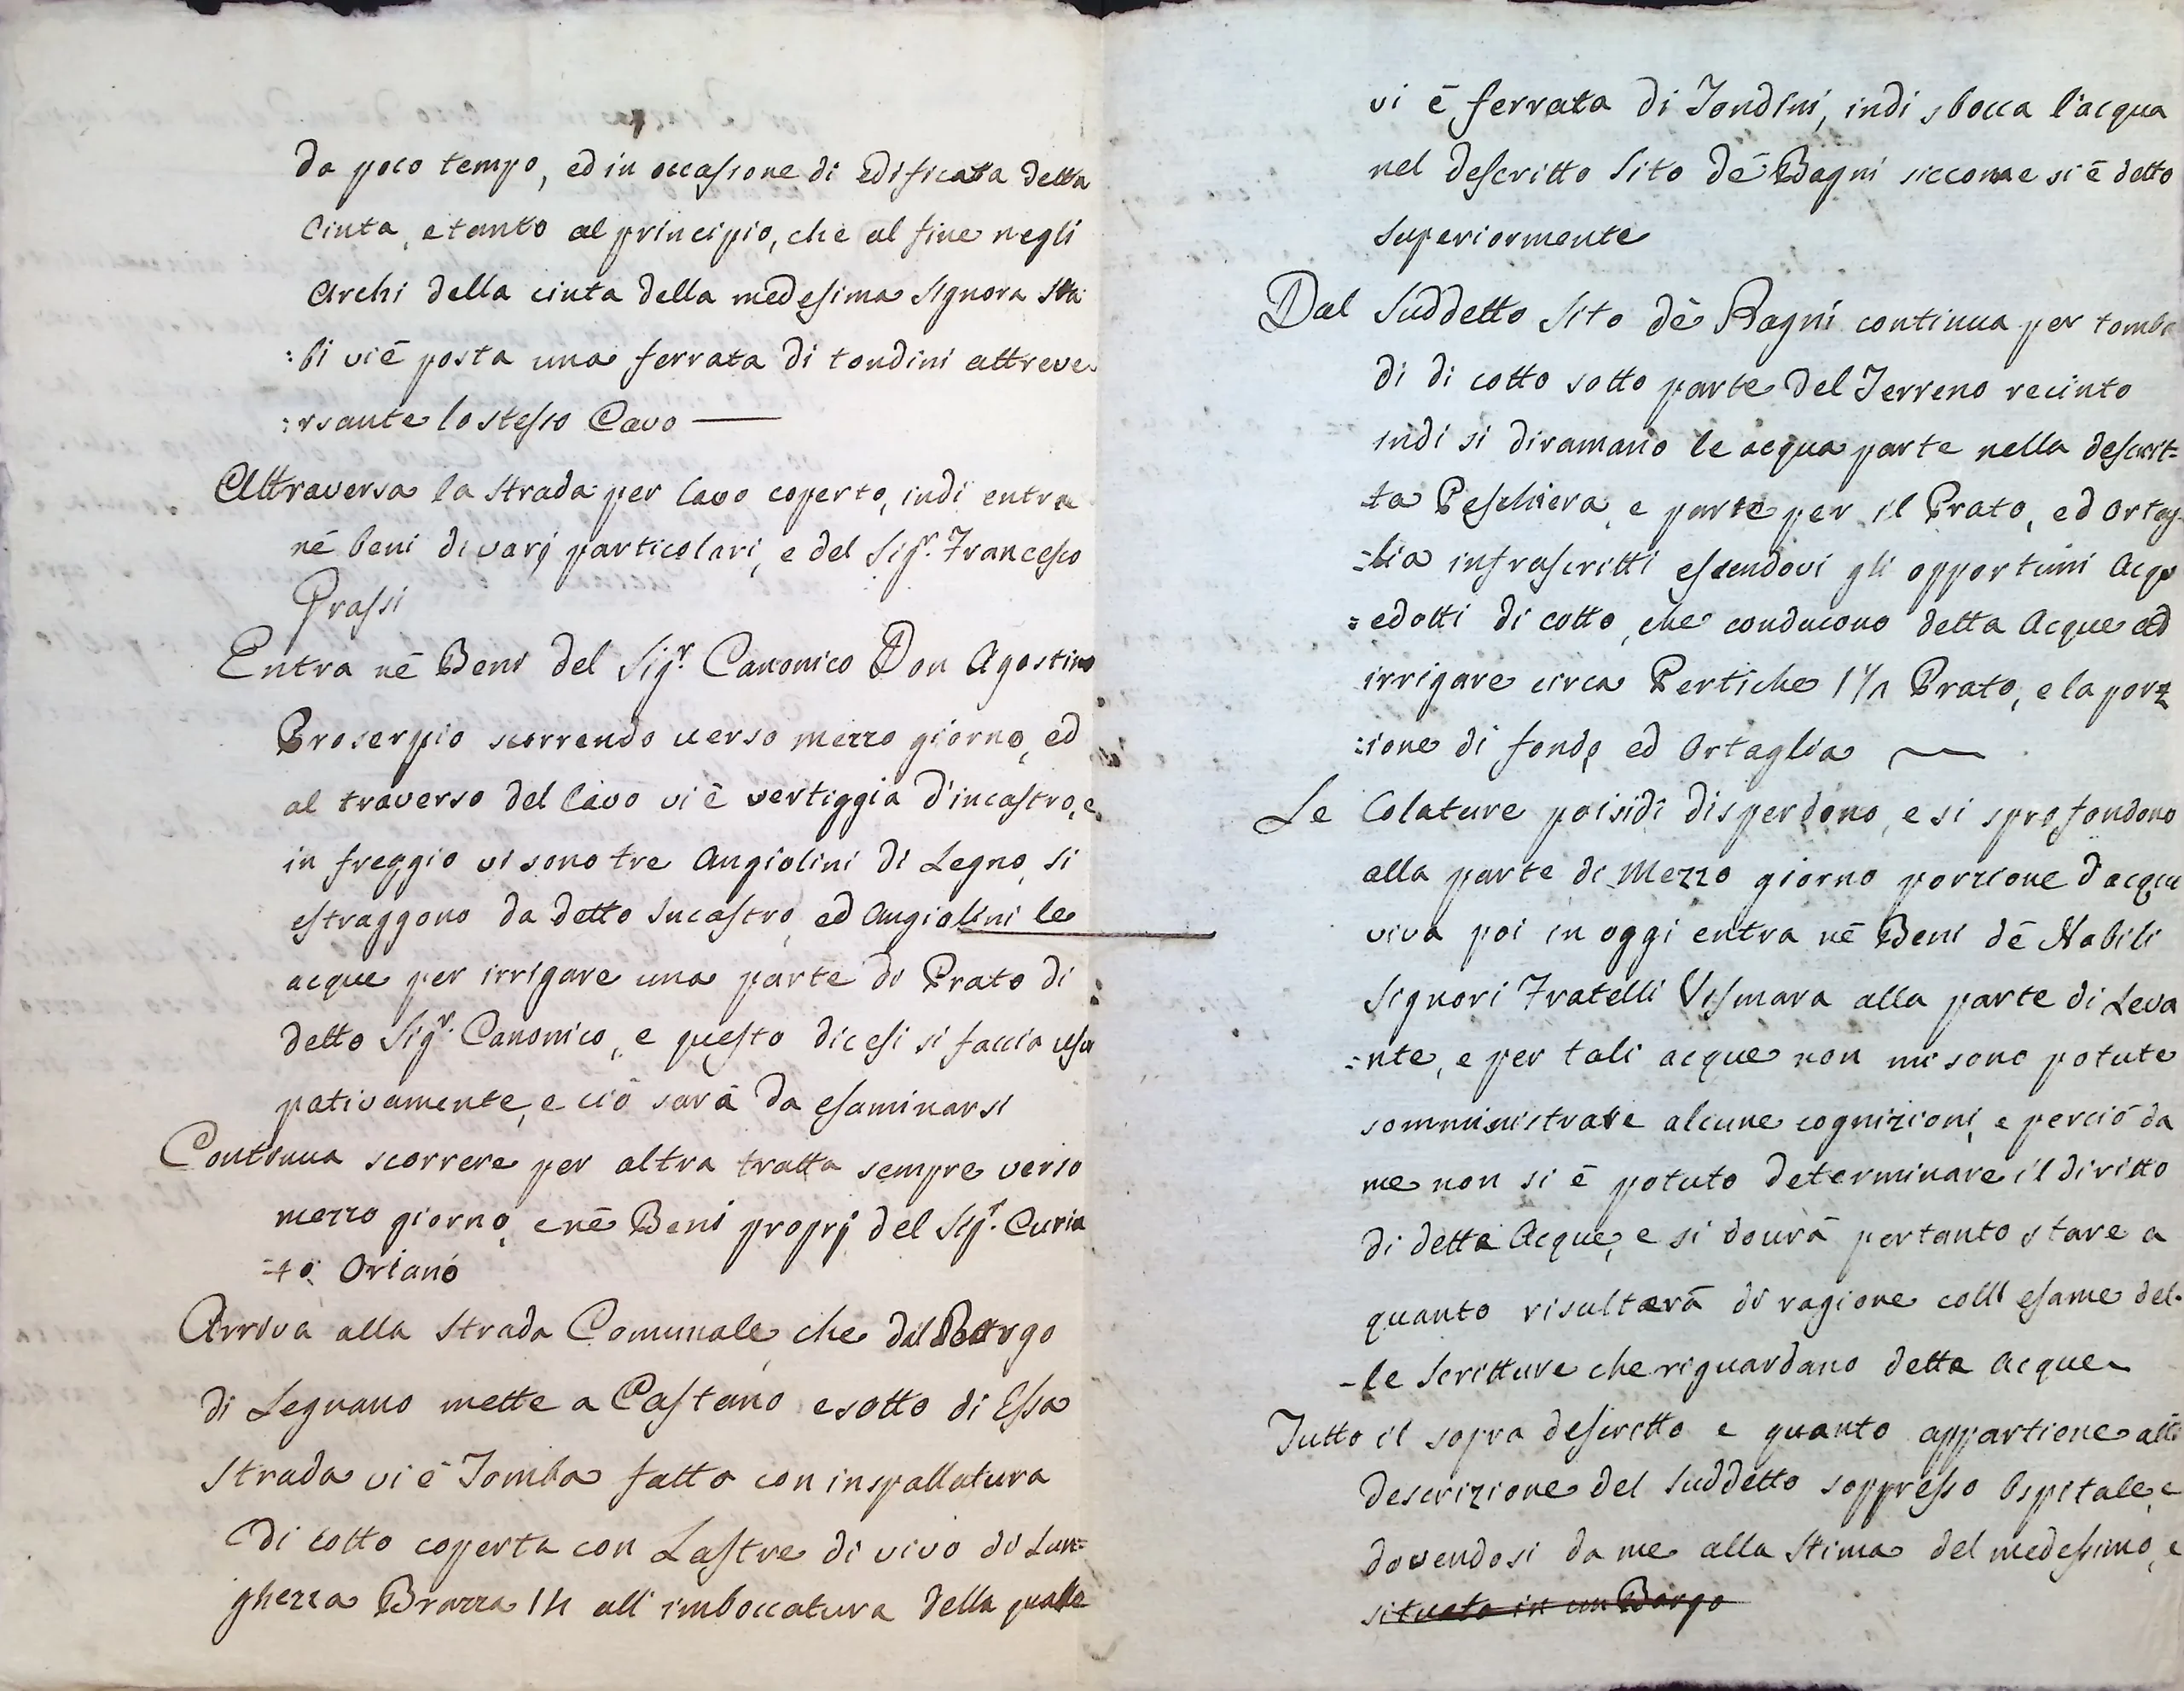 da poco tempo, ed in occasione di edificata detta
Cinta, e tanto al principio, che al fine negli
Archi della cinta della medesima Signora
:bi vi è posta una ferrata di tondini attrave
:rsante lo stesso Cavo —
Attraversa la Strada per Cavo coperto, indi entra
nè beni di varj particolari, e del Sigr. Francesco
Prassi
Entra nè Beni del Sigr. Canonico Don Agostino
Proserpio scorrendo verso mezzo giorno, ed
al traverso del Cavo vi è vertiggia d'incastro, e
in freggio vi sono tre Angiolini di Legno, si
estraggono da detto Incastro, ed Angiolini le
acque per irrigare una parte di Prato di
detto Sigr. Canonico, e questo dicesi si faccia usur
pativamente, e ciò sarà da esaminarsi
Continua scorrere per altra tratta sempre verso
mezzo giorno, e nè Beni proprj del Sigr. Curia
-to Oriano
Arriva alla Strada Comunale, che dal Borgo
di Legnano mette a Castano e sotto di Essa
Strada vi è Tomba fatta con inspallatura
di cotto coperta con Lastre di vivo di Lun=
ghezza Brazza 14 all'imboccatura della quale
vi è ferrata di Tondini, indi sbocca l'acqua
nel descritto Sito dè Bagni siccome si è detto
superiormente
Dal Suddetto Sito dè Bagni continua per tombe
di di cotto sotto parte del Terreno recinto
indi si diramano le acqua parte nella descrit=
ta Peschiera, e parte per il Prato, ed Ortag
-lia infrascritti essendovi gli opportuni Acqu
=edotti di cotto, che conducono detta Acque ad
irrigare circa Pertiche 1 1/2 Prato, e la porz
:ione di fondo ed Ortaglia —
Le Colature poi si di disperdono, e si sprofondono
alla parte di Mezzo giorno porzione d'acqua
viva poi in oggi entra nè Beni dè Nobili
Signori Fratelli Vismara alla parte di Leva
:nte, e per tali acque non mi sono potute
somministrare alcune cognizioni, e perciò da
me non si è potuto determinare il diritto
di dette Acque, e si dovrà pertanto stare a
quanto risulterà di ragione coll esame del-
-le Scritture che riguardano dette Acque
Tutto il sopra descritto e quanto appartiene alla
descrizione del Suddetto soppresso Ospitale, e
dovendosi da me alla Stima del medesimo, e
situato in un Borgo